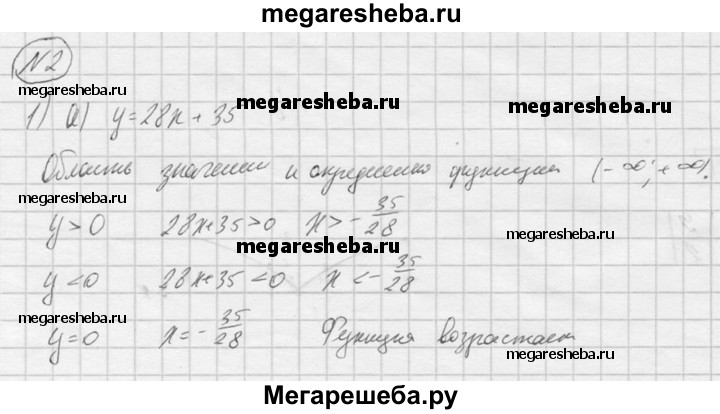 megaresheba.ru
N2
megaresheba.ru
1) а) y=28x+35
megaresheba.ru
megaresheba.ru
Область значений и определения функции (-∞;+∞).
megaresheba.ru
y>0 28x+35>0 x>-35/28
megaresheba.ru
megaresheba.ru
y<0 28x+35<0 x<-35/28
megaresheba.ru
y=0 x=-35/28 Функция возрастает
megaresheba.ru
Мегарешеба.ру